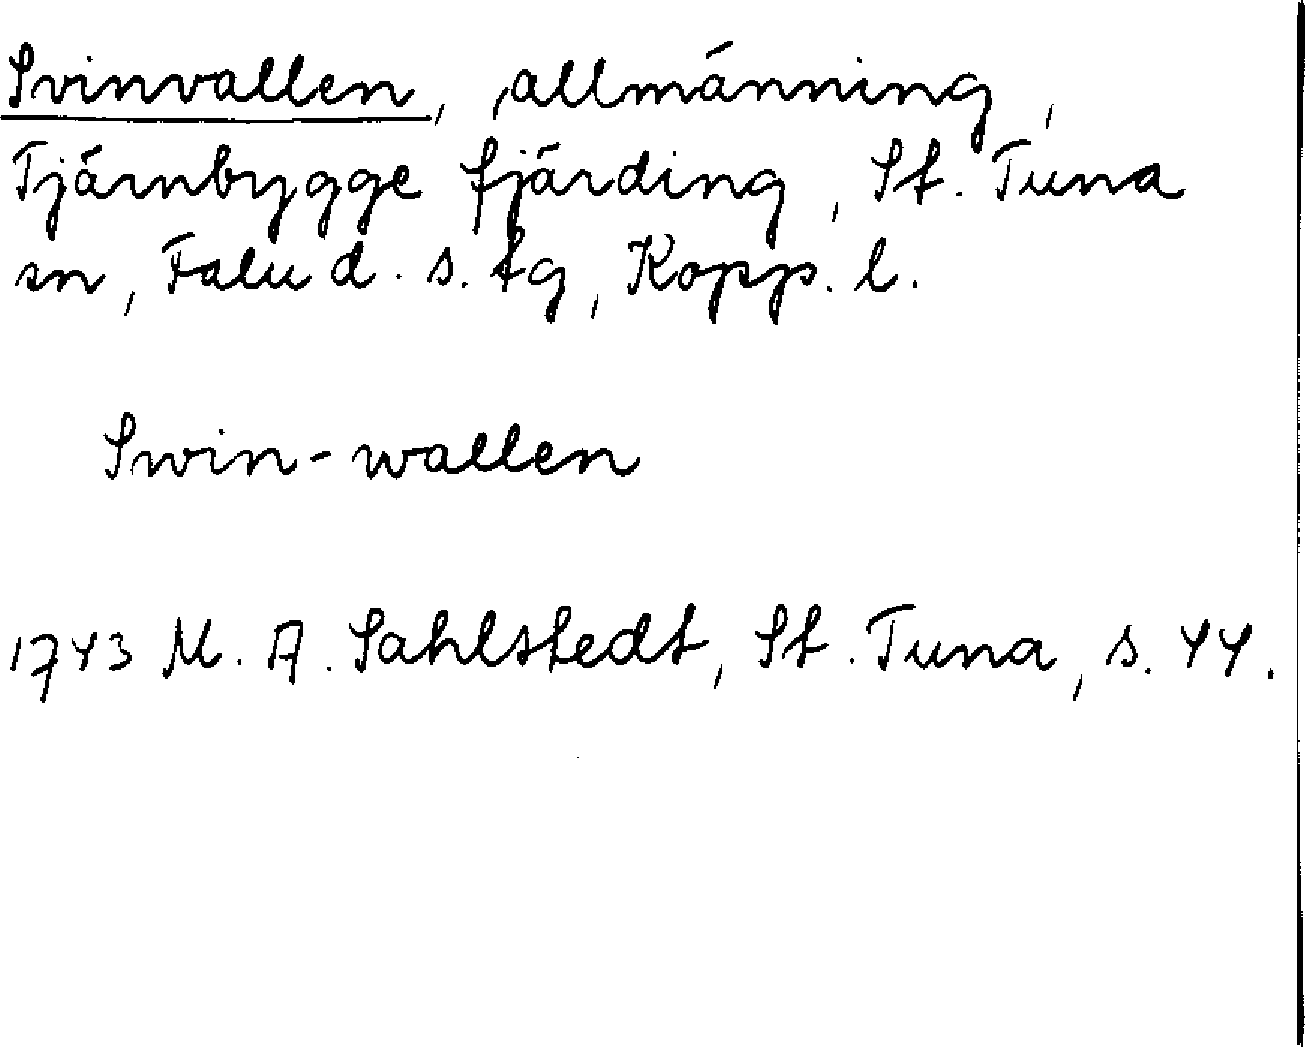 Svinvallen, allmänning,
Tjärnbygge fjärding, St. Tuna
sn, Falu d. s. tg, Kopp. l.
Swin-wallen
1743 M. A. Sahlstedt, St. Tuna, s. 44.